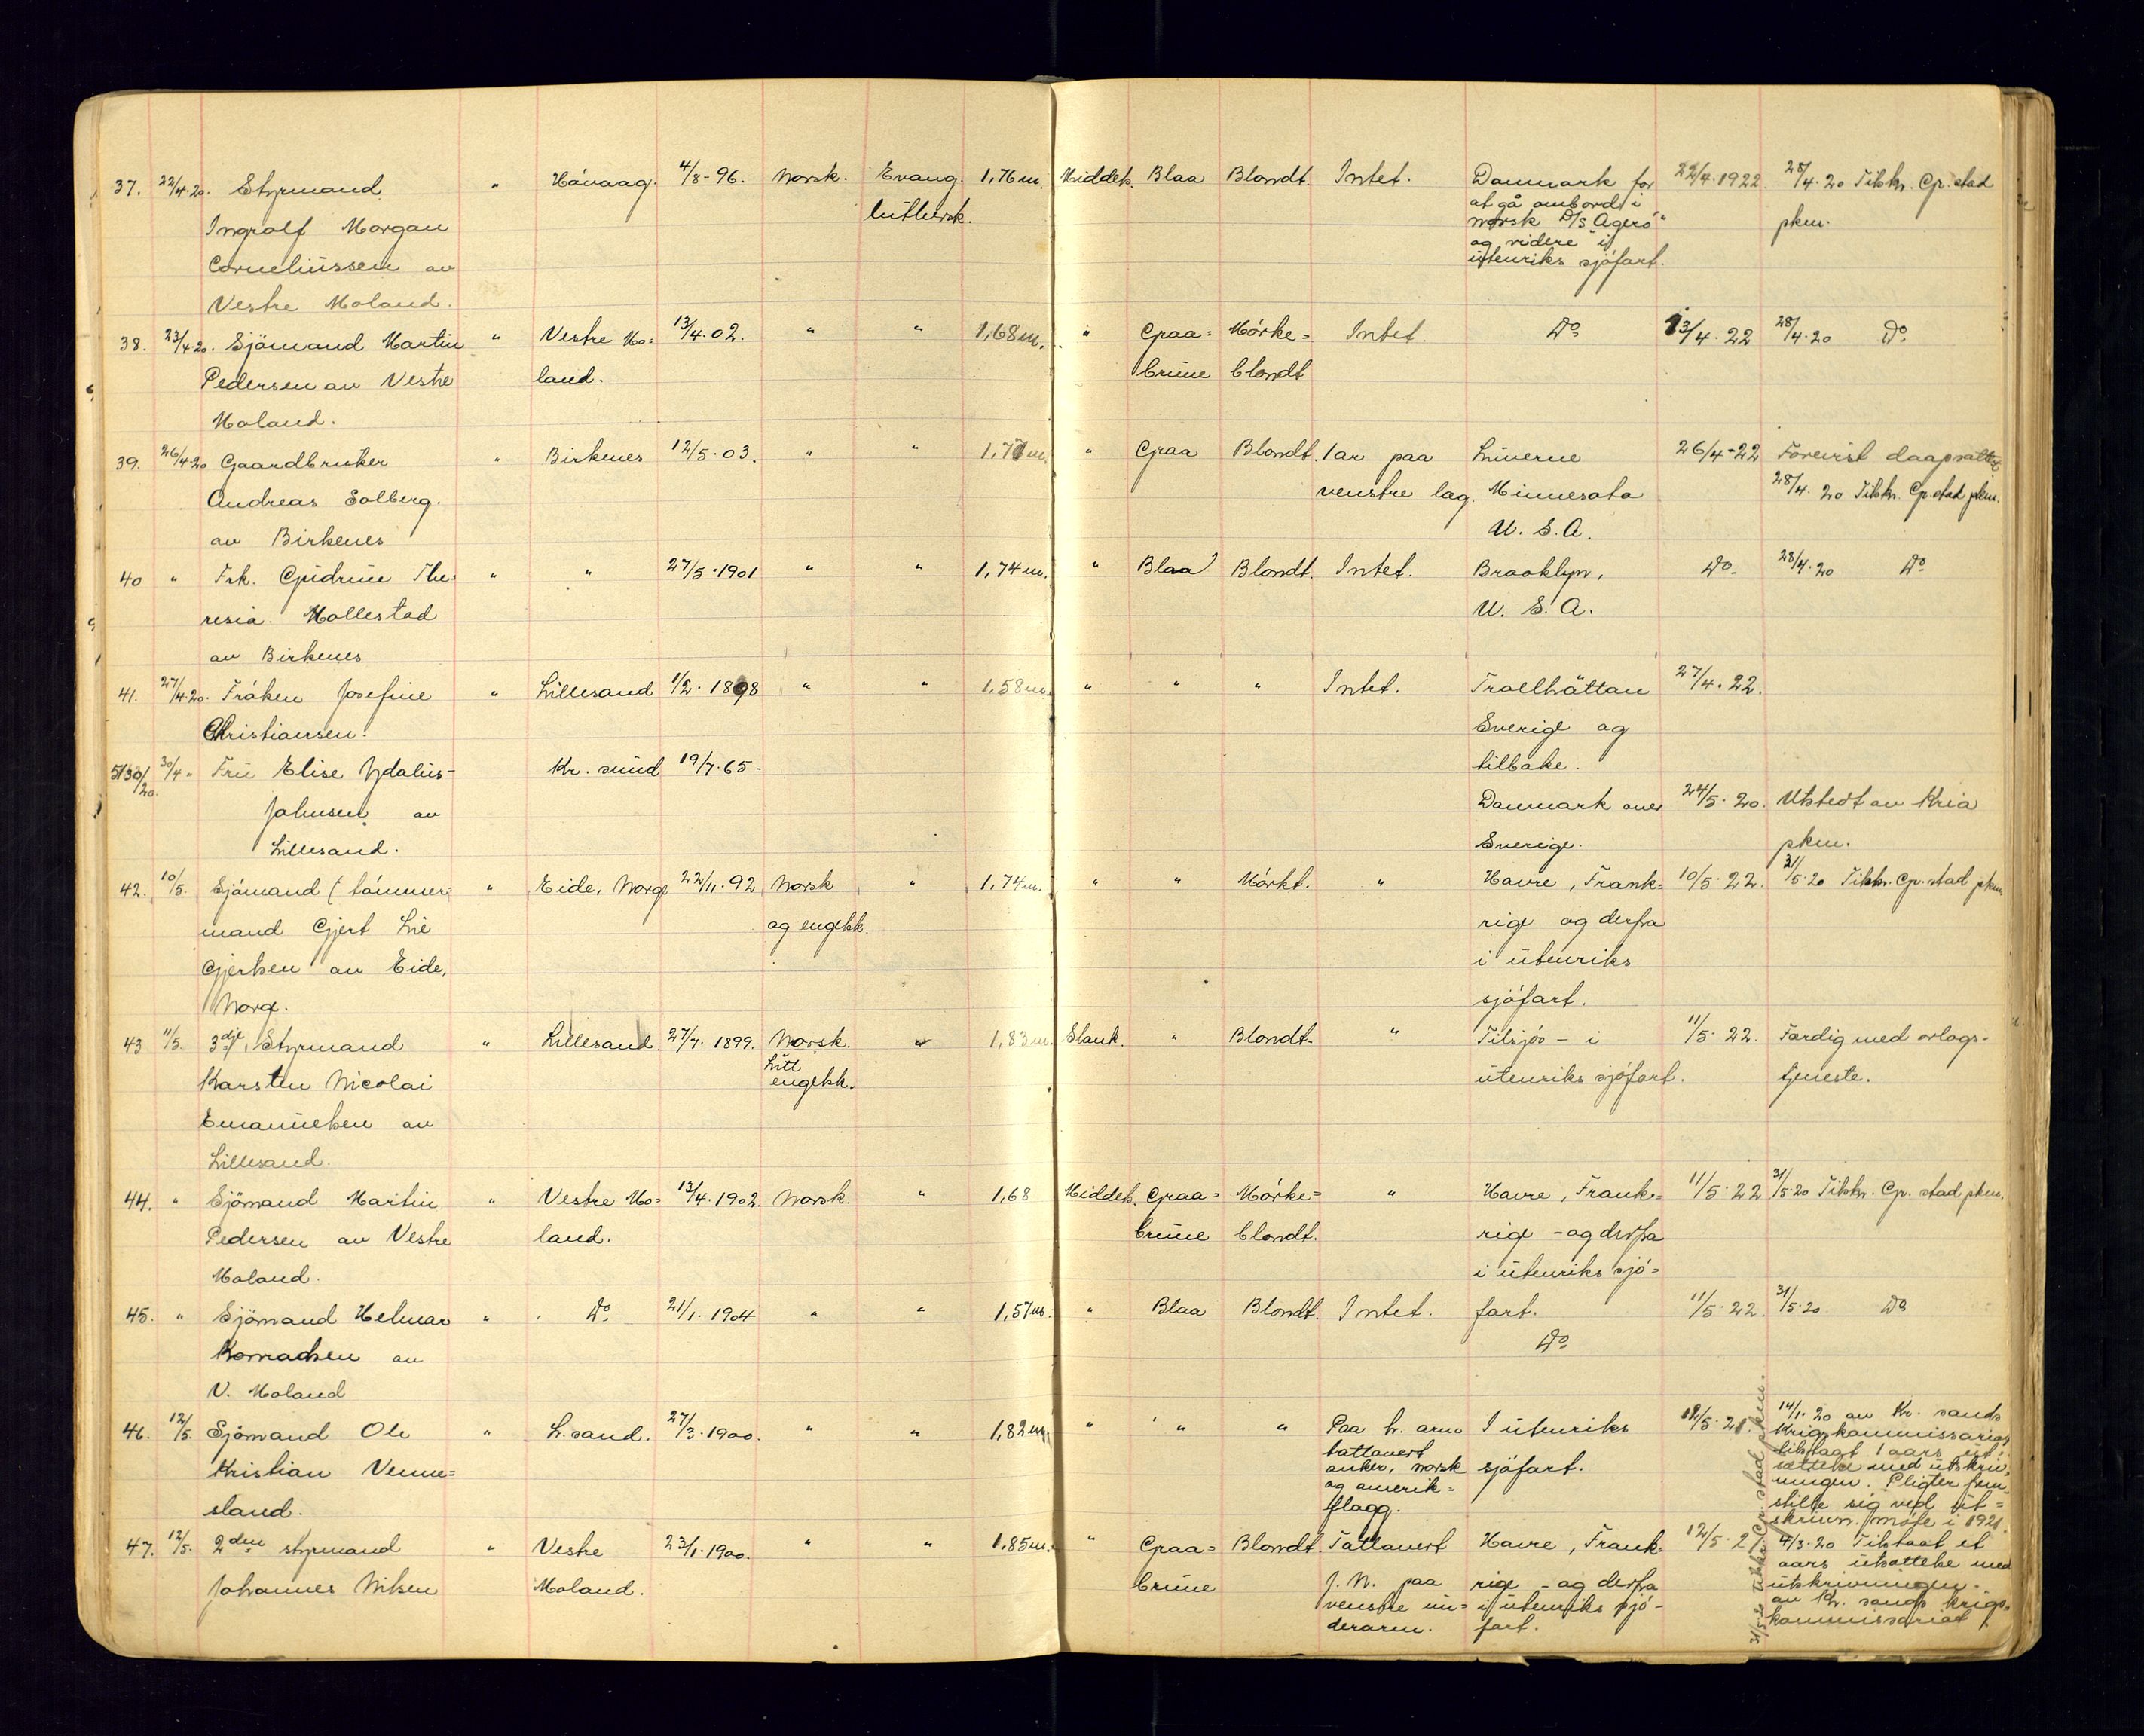 37. 22/4.20. Styrmand " Hövaag. 4/8-96. Norsk. Evang. 1,76 m. Middels. Blaa Blondt. Intet. Danmark for 22/4.1922. 28/4.20 Tilskr. Gr.stad
Ingvolf Morgan luthersk. at gå ombord i norsk D/S "Agerö" pkm.
Corneliussen av og videre i
Vestre Moland. utenriks sjöfart.
38. 23/4.20. Sjömand Martin " Vestre Mo= 13/4.02. " " 1,68 m. " Graa= Mörke= Intet. Do 13/4.22 28/4.20 Do
Pedersen av Vestre land. brune blondt
Moland.
39. 26/4.20 Gaardbruker " Birkenes 12/5.03. " " 1,77 m. " Graa Blondt. 1 ar paa Luverne 26/4-22 Forevist daapsattest
Andreas Solberg. venstre lag. Minnesota 28/4.20 Tilskr. Gr.stad pkm.
av Birkenes U.S.A.
40 " Frk. Gudrun The= " " 27/5.1901 " " 1,74 m. " Blaa Blondt. Intet. Brooklyn, Do. 28/4.20 Do
resia Mollestad U.S.A.
av Birkenes
41. 27/4.20. Fröken Josefine " Lillesand 1/2.1898 " " 1,58 m. " " " Intet. Trollhättan 27/4.22.
Christiansen. Sverige og
tilbake.
5/30/20. 30/4 " Fru Elise Ydalus- Kr.sund 19/7.65-
Johnsen av Danmark over 24/5.20. Utstedt av Kria
Lillesand. Sverige. pkm.
42. 10/5. Sjömand (tömmer= " Eide, Norge 22/11.92 Norsk " 1,74 m. " " Mörkt. " Havre, Frank= 10/5.22. 31/5.20 Tilskr. Gr.stad pkm
mand Gjert Lie og engelsk. rige og derfra
Gjertsen av Eide, i utenriks
Norge. sjöfart.
43 11/5. 3dje Styrmand " Lillesand. 27/7.1899. Norsk. " 1,83 m. Slank. " Blondt. " Tilsjös - i 11/5.22. Færdig med orlogs-
Karsten Nicolai Litt engelsk. utenriks sjöfart. tjeneste.
Emanuelsen av
Lillesand.
44. " Sjömand Martin " Vestre Mo= 13/4.1902. Norsk. " 1,68 Middels. Graa= Mörke= " Havre, Frank= 11/5.22 31/5.20 Tilskr. Gr.stad pkm.
Pedersen av Vestre land. brune blondt. rige - og derfra
Moland. i utenriks sjö=
45. " Sjömand Helmar " Do 21/1.1904 " " 1,57 m. " Blaa Blondt. Intet. fart. 11/5.22. 31/5.20 Do
Konradsen av Do
V. Moland
46. 12/5. Sjömand Ole " L.sand. 27/3.1900. " " 1,82 m. " " " Paa h. arm I utenriks 12/5.21. 14/1.20 av Kr.sands
Kristian Venne= tattovert anker, norsk sjöfart. krigskommissariat tilstaat 1 aars ut=
sland. og amerik= flagg. sættelse med utskriv= ningen. Pligter frem= stille sig ved ut= skrivn. møte i 1921.
47. 12/5. 2den styrmand " Vestre 23/1.1900. " " 1,85 m. " Graa= Blondt. Tattovert Havre, Frank= 12/5.21 4/3.20 Tilstaat et
Johannes Nilsen Moland. brune J.N. paa rige - og derfra aars utsættelse med utskrivningen.
venstre un= i utenriks sjö- av Kr.sands krigs=
derarm. fart. kommissariat.
31/5.20 tilskr. Gr.stad pkm.